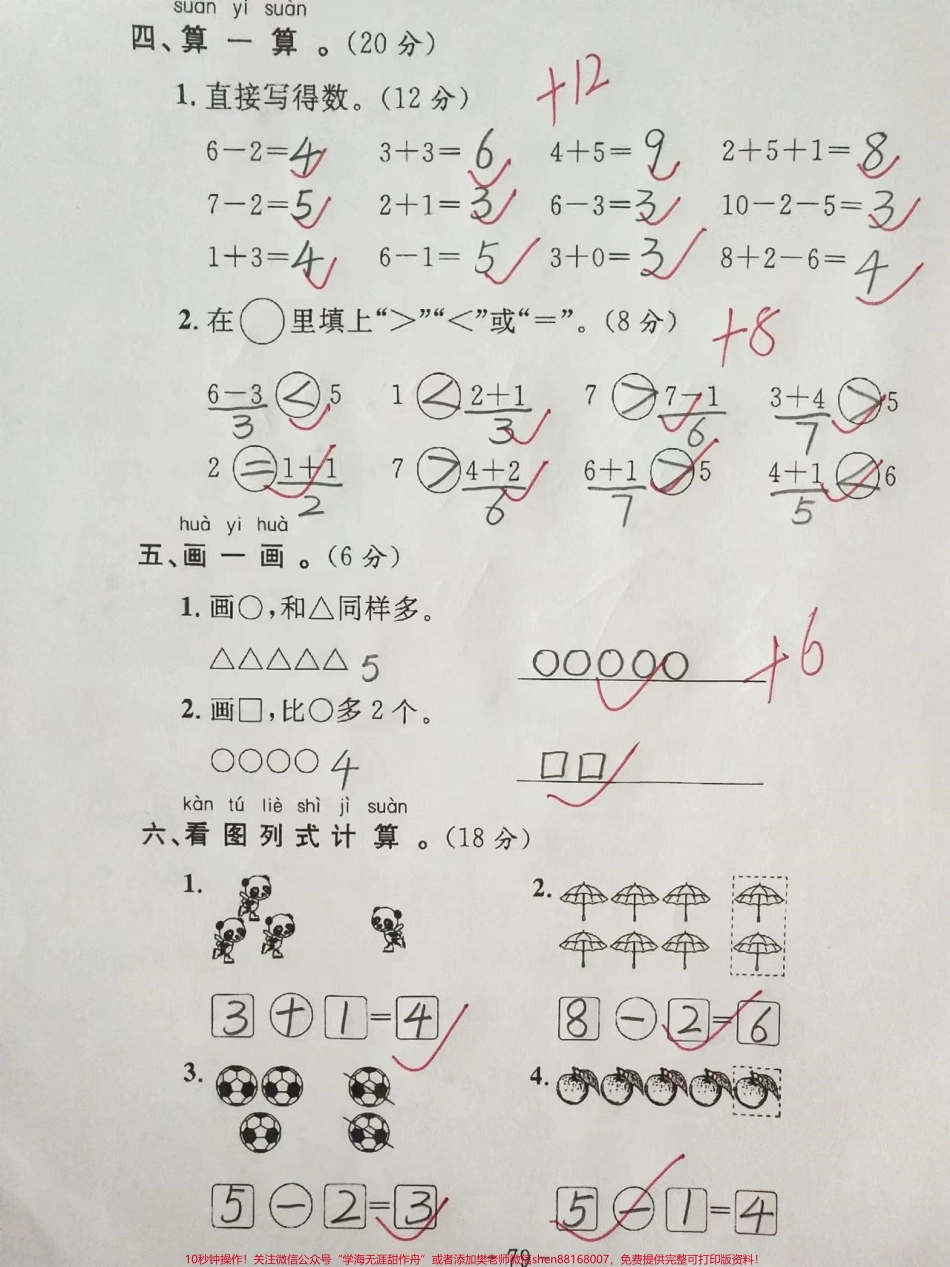 suàn yi suàn
四、算一算。(20分)
+12
1. 直接写得数。(12分)
6-2=4 3+3=6 4+5=9 2+5+1=8
7-2=5 2+1=3 6-3=3 10-2-5=3
1+3=4 6-1=5 3+0=3 8+2-6=4
2. 在○里填上“>”“<”或“=”。(8分) +8
6-3<5 1<2+1 7>7-1 3+4>5
3 3 6 7
2=1+1 7>4+2 6+1>5 4+1<6
2 6 7 5
huà yi huà
五、画一画。(6分)
1. 画○,和△同样多。
△△△△△ 5 ○○○○○ +6
2. 画□,比○多2个。
○○○○ 4 □□
kàn tú liè shì jì suàn
六、看图列式计算。(18分)
1. 2.
3+1=4 8-2=6
3. 4.
5-2=3 5-1=4
79
10秒钟操作!关注微信公众号“学海无涯甜作舟”或者添加樊老师微信shen88168007,免费提供完整可打印版资料!